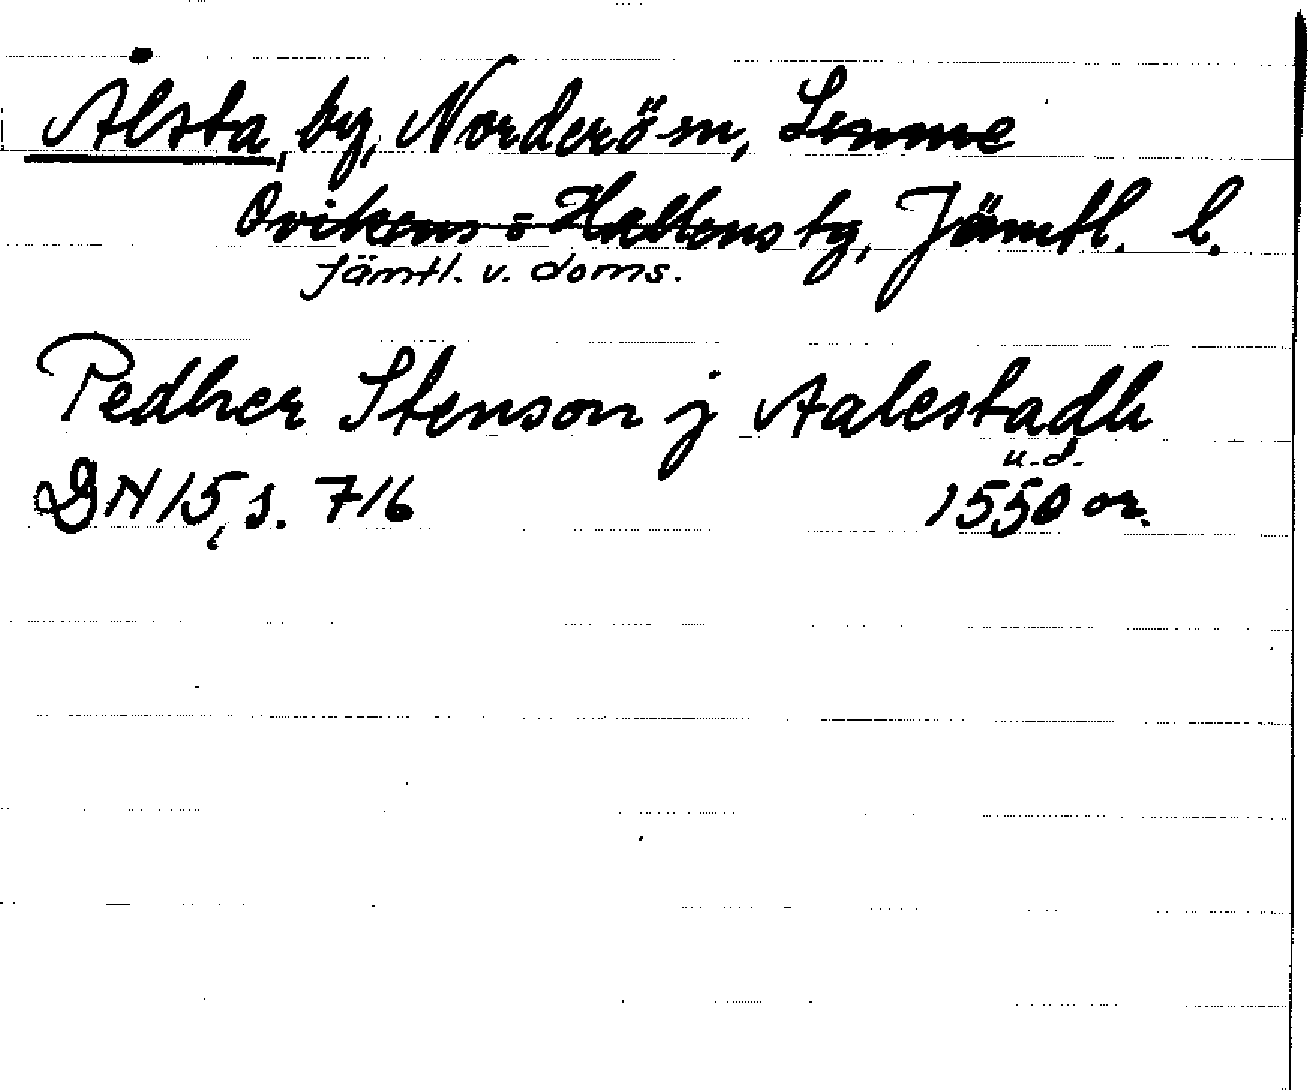 Ålsta, by, Norderö sn, Sunne
Ovikens o Hallens tg, Jämtl. l.
Jämtl. v. doms.
Pedher Stenson j Aalestadh
u.d.
DN 15, s. 716 1550 or.